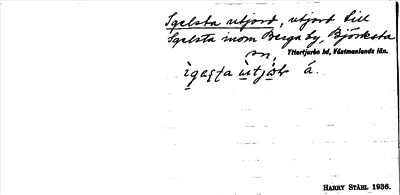 Igelsta utjord, utjord till
Igelsta inom Berga by, Björksta
sn,
Yttertjurbo hd, Västmanlands län.
ìgasta ùtjòk á.
HARRY STÅHL 1936.